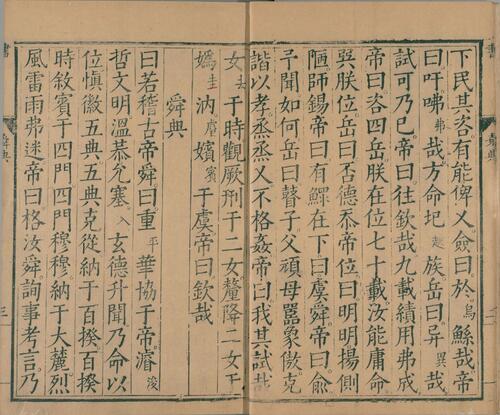 下民其咨有能俾乂僉曰於烏鯀哉帝
曰吁咈弗哉方命圮起族岳曰异異哉
試可乃已帝曰往欽哉九載績用弗成
帝曰咨四岳朕在位七十載汝能庸命
巽朕位岳曰否德忝帝位曰明明揚側
陋師錫帝曰有鰥在下曰虞舜帝曰俞
予聞如何岳曰瞽子父頑母嚚象傲克
諧以孝烝烝乂不格姦帝曰我其試哉
女去于時觀厥刑于二女釐降二女于
媯圭汭嬪賓于虞帝曰欽哉
舜典
曰若稽古帝舜曰重平華協于帝濬浚
哲文明溫恭允塞入玄德升聞乃命以
位慎徽五典五典克從納于百揆百揆
時敘賓于四門四門穆穆納于大麓烈
風雷雨弗迷帝曰格汝舜詢事考言乃